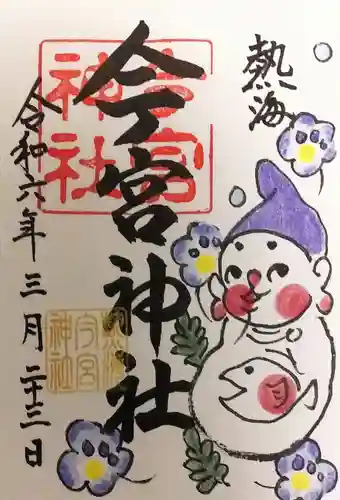 熱海
今宮神社
今宮
神社
令和六年三月二十三日
熱海
今宮
神社